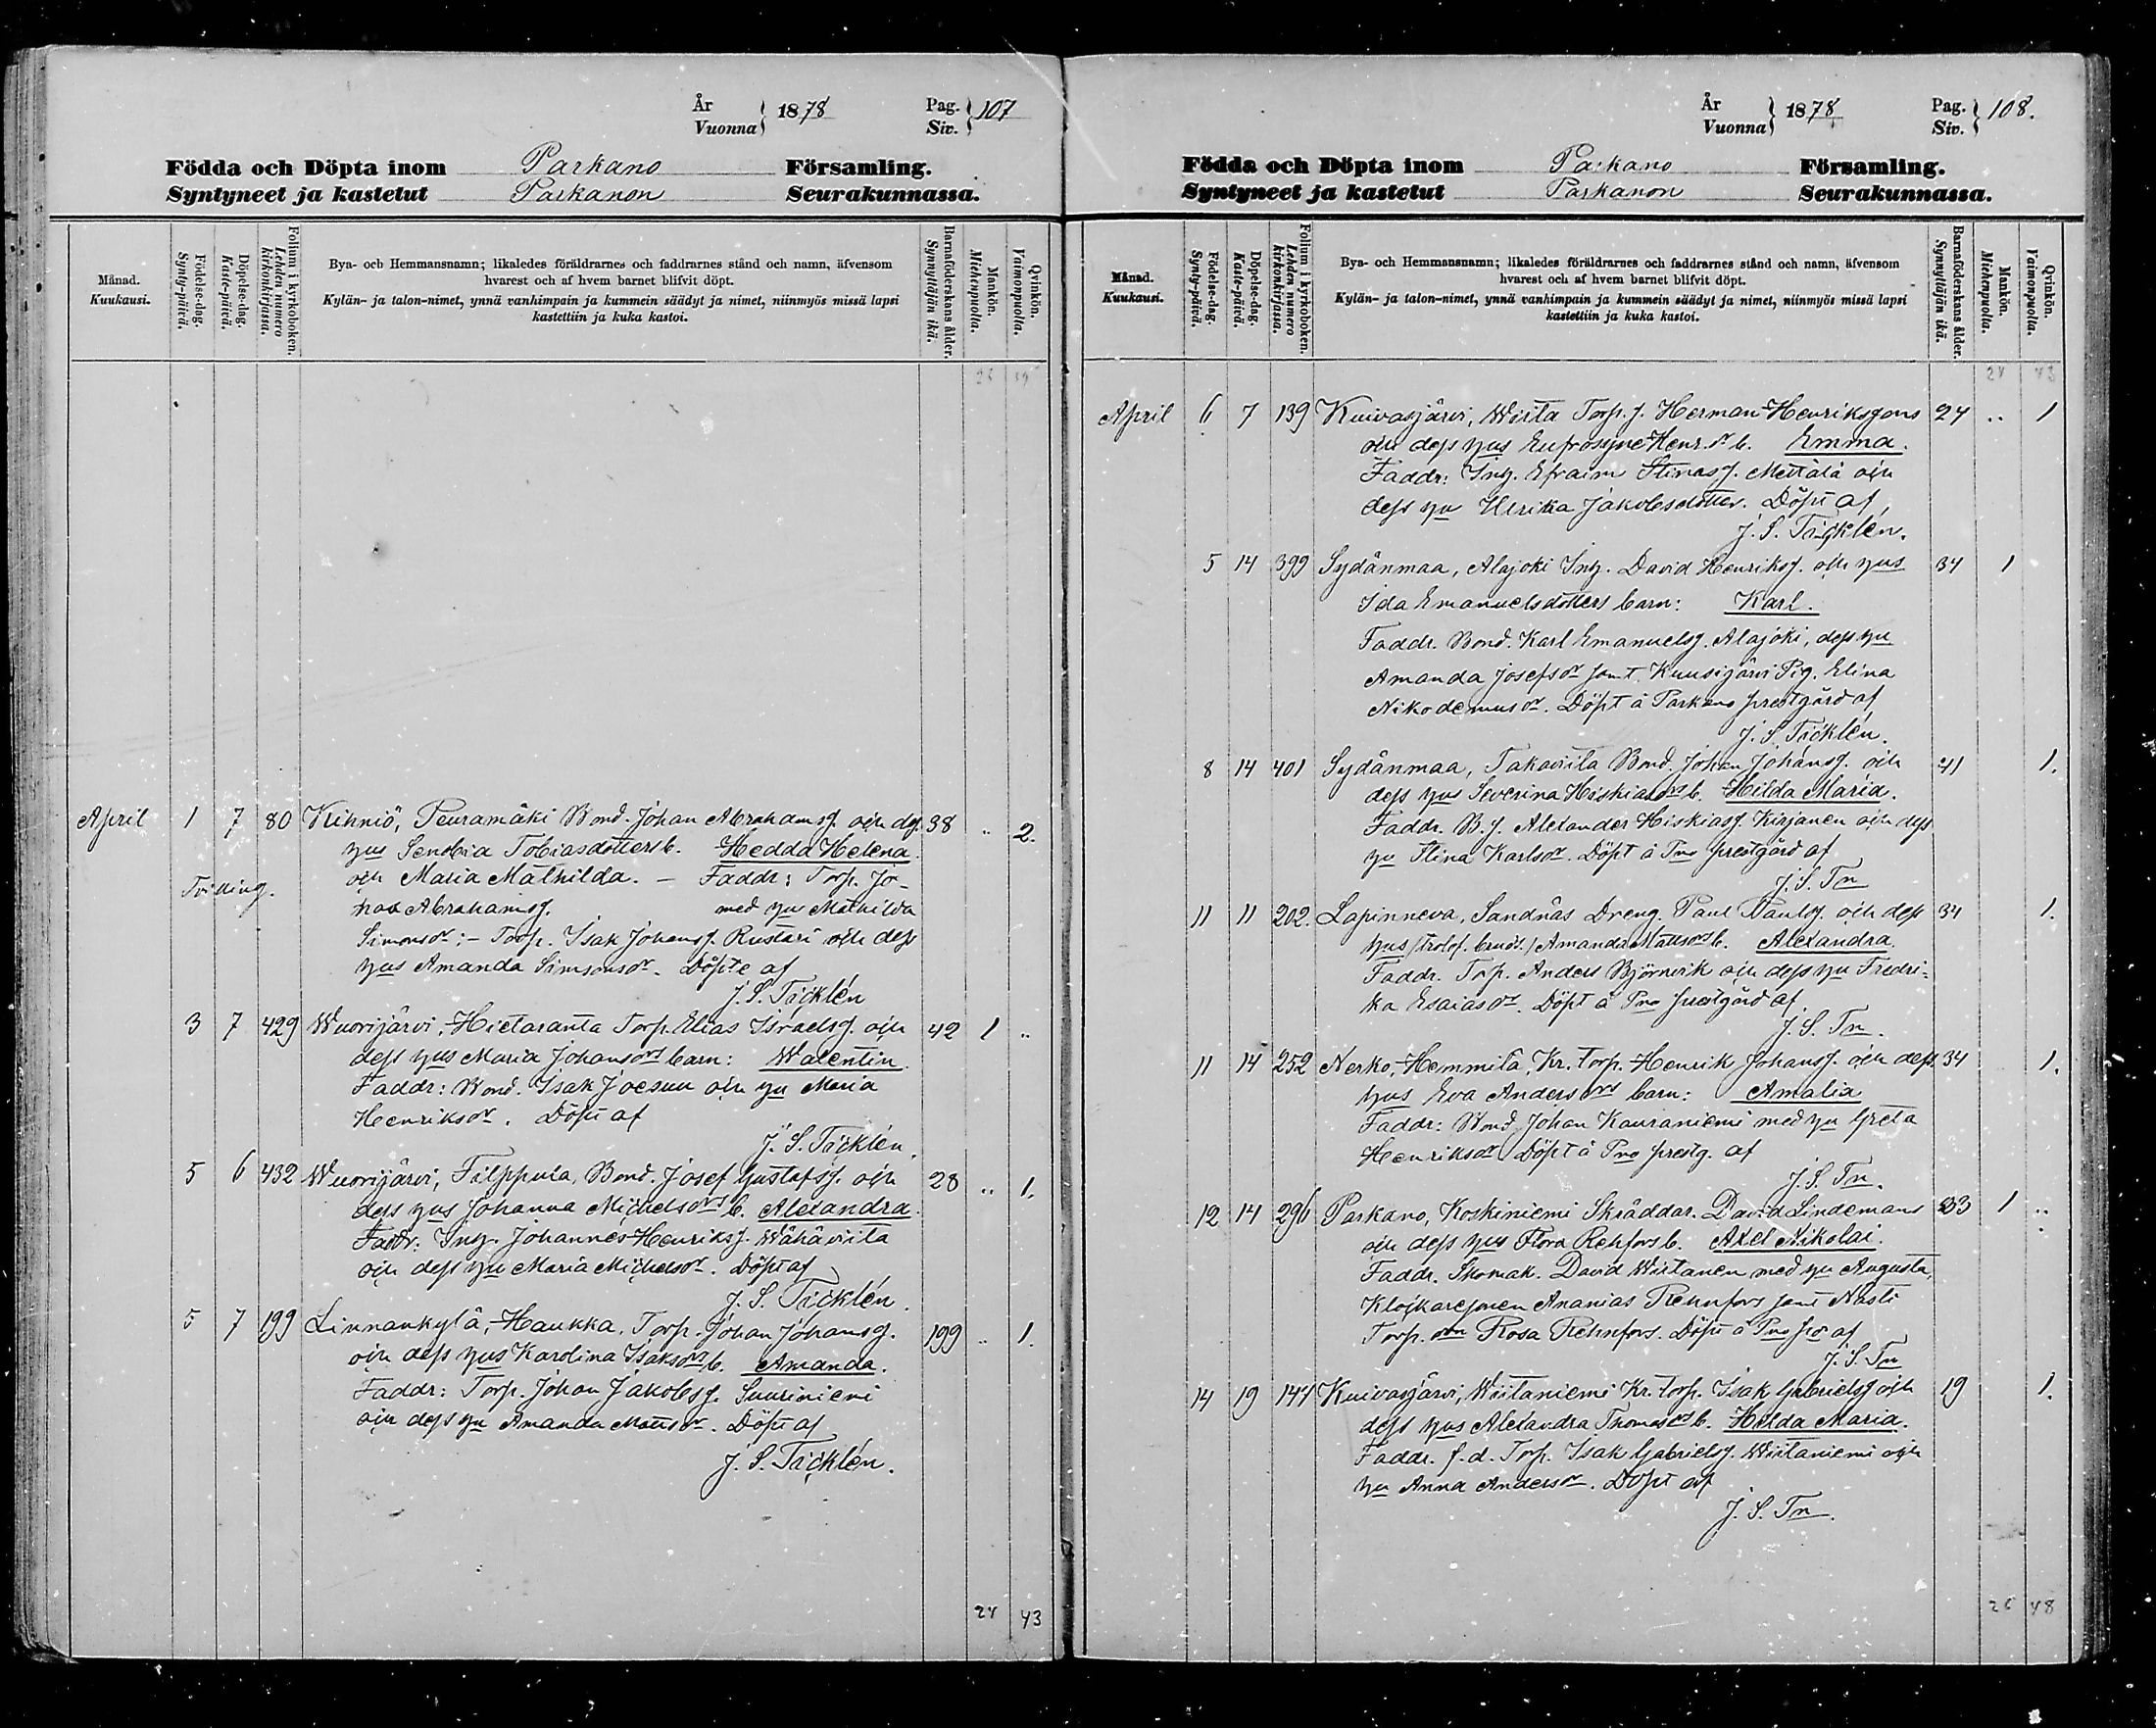 År
Vuonna } 1878 Pag.
Siv. } 107
Födda och Döpta inom Parkano Församling.
Syntyneet ja kastetut Parkanon Seurakunnassa.
Månad.
Kuukausi.
Födelse-dag.
Synty-päivä.
Döpelse-dag.
Kaste-päivä.
Folium i kyrkoboken.
Lehden numero kirkonkirjassa.
Bya- och Hemmansnamn; likaledes föräldrarnes och faddrarnes stånd och namn, äfvensom
hvarest och af hvem barnet blifvit döpt.
Kylän- ja talon-nimet, ynnä vanhimpain ja kummein säädyt ja nimet, niinmyös missä lapsi
kastettiin ja kuka kastoi.
Barnaföderskans ålder.
Synnyttäjän ikä.
Mankön.
Miehenpuolia.
Qvinkön.
Vaimonpuolia.
April 1 7 80 Kihniö, Peuramäki Bond. Johan Abrahamsf. och des 38 .. 2.
hus Senobia Tobiasdotters b. Hedda Helena
och Maria Mathilda. — Faddr: Torp. Jo-
Tvilling.
han Abrahamsf. med hu Mathilda
Simonsdr: - Torp. Isak Johansf. Rustari och dess
hus Amanda Simsonsdr. Döpte af
J. S. Täcklén
3 7 429 Wuorijärvi, Hietaranta Torp. Elias Israelsf. och 42 1 ..
dess hus Maria Johansdrs barn: Walentin.
Faddr: Bond. Isak Joesuu och hu Maria
Henriksdr. Döpt af
J. S. Täcklén.
5 6 432 Wuorijärvi, Filppula, Bond. Josef Gustafsf. och 28 .. 1.
dess hus Johanna Michelsdrs b. Alexandra.
Faddr: Inh. Johannes Henriksf. Wähäviita
och dess hu Maria Michelsdr. Döpt af
J. S. Täcklén.
5 7 199 Linnankylä, Haukka, Torp. Johan Johansf. 199 .. 1.
och dess hus Karolina Isaksdrs b. Amanda.
Faddr: Torp. Johan Jakobsf. Suuriniemi
och dess hu Amanda Mattsdr. Döpt af
J. S. Täcklén.
24 43
År
Vuonna } 1878 Pag.
Siv. } 108.
Födda och Döpta inom Parkano Församling.
Syntyneet ja kastetut Parkanon Seurakunnassa.
Månad.
Kuukausi.
Födelse-dag.
Synty-päivä.
Döpelse-dag.
Kaste-päivä.
Folium i kyrkoboken.
Lehden numero kirkonkirjassa.
Bya- och Hemmansnamn; likaledes föräldrarnes och faddrarnes stånd och namn, äfvensom
hvarest och af hvem barnet blifvit döpt.
Kylän- ja talon-nimet, ynnä vanhimpain ja kummein säädyt ja nimet, niinmyös missä lapsi
kastettiin ja kuka kastoi.
Barnaföderskans ålder.
Synnyttäjän ikä.
Mankön.
Miehenpuolia.
Qvinkön.
Vaimonpuolia.
24 43
April 6 7 139 Kuivasjärvi, Wiita Torp. f. Herman Henriksfons 24 .. 1
och dess hus Eufrosyne Henr.dr b. Emma.
Faddr: Inh. Efraim Stinasf. Mettälä och
dess hu Ulrika Jakobsdotter. Döpt af
J. S. Täcklén.
5 14 399 Sydänmaa, Alajoki Inh. David Henriksf. och hus 34 1
Ida Emanuelsdotters barn: Karl.
Faddr. Bond. Karl Emanuelsf. Alajoki, dess hu
Amanda Josefsdr samt Kuusijärvi Pig. Elina
Nikodemusdr. Döpt å Parkano prestgård af
J. S. Täcklén.
8 14 401 Sydänmaa, Takaviita Bond. Johan Johansf. och 41 1.
dess hus Severina Hiskiasdrs b. Hilda Maria.
Faddr. B.f. Alexander Hiskiasf. Kirjanen och dess
hu Stina Karlsdr. Döpt å Pno prestgård af
J. S. Tn
11 11 202. Lapinneva, Sandnäs Dreng. Paul Paulsf. och dess 34 1.
hus Amanda Mattsdrs b. Alexandra.
Faddr. Torp. Anders Björnvik och dess hu Fredri-
ka Esaiasdr. Döpt å Pno prestgård af
J. S. Tn.
11 14 252 Nerko, Hemmilä, Kr. torp. Henrik Johansf. och dess 34 1.
hus Eva Andersdrs barn: Amalia
Faddr: Bond. Johan Kauraniemi med hu Greta
Henriksdr Döpt å Pno prestg. af
J. S. Tn.
12 14 296 Parkano, Koskiniemi Skräddar. David Lindemans 33 1 ..
och dess hus Flora Rehfors b. Axel Nikolai.
Faddr. Skomak. David Wirtanen med hu Augusta,
Klockaresonen Ananias Rehnfors samt Nästi
Torp. Rosa Rehnfors. Döpt å Pno af
J. S. Tn
14 19 144 Kuivasjärvi, Wiitaniemi Kr. torp. Isak Gabrielsf och 19 1.
dess hus Alexandra Thomasdrs b. Hilda Maria.
Faddr. f.d. Torp. Isak Gabrielsf. Wiitaniemi och
hu Anna Andersdr. Döpt af
J. S. Tn.
48